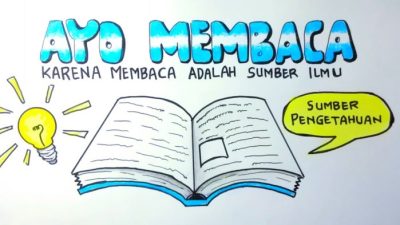 AYO MEMBACA
KARENA MEMBACA ADALAH SUMBER ILMU
SUMBER
PENGETAHUAN